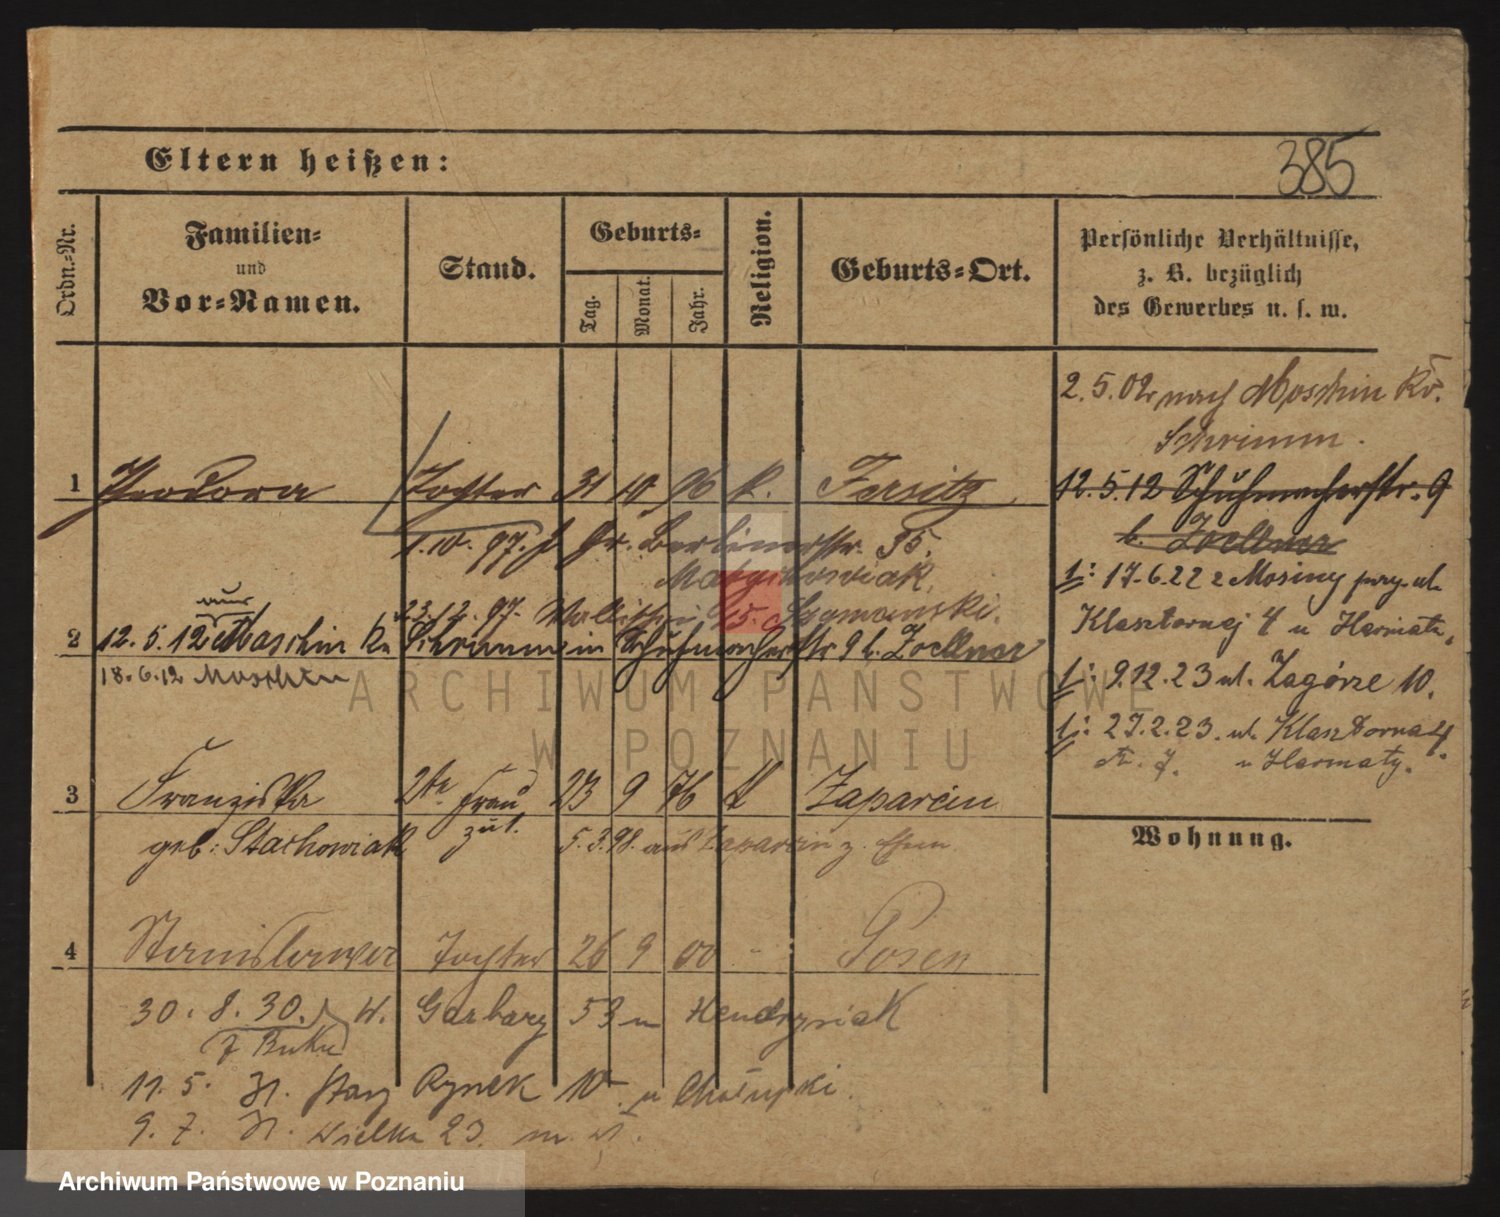 Eltern heißen:
385
Ordn.-Nr.
Familien-
und
Vor-Namen.
Stand.
Geburts-
Tag.
Monat.
Jahr.
Religion.
Geburts-Ort.
Persönliche Verhältnisse,
z. B. bezüglich
des Gewerbes u. s. w.
2.5.02 nach Moschin Kr.
Schrimm.
1 Theodora Tochter 31 10 96 k. Jersitz
12.5.12 Schuhmacherstr. 9
b. Zoellner
1.10.97. Gr. Berlinerstr. 35.
Matysikowiak.
1: 17.6.22 z Mosiny przy ul.
Klasztornej 4 u Harmat
23.12.97. Wallischei 15. Szymanski.
aus
2 12.5.12 Moschin Kr. Schrimm in Schuhmacherstr 9 b. Zoellner
18.6.12 Moschin
1: 9.12.23 ul. Zagórze 10.
1: 27.2.23. ul. Klasztorna 4.
u Harmaty.
3 Franziska 2te Frau 23 9 76 k Zaparcin
zul.
geb: Stachowiak
5.3.98. aus Zaparcin z.
Wohnung.
4 Stanislawa Tochter 26 9 00 - Posen
30.8.30. W. Garbary 53 u Hendrysiak
z Buku
11.5. Stary Rynek 10 u Chałupki.
9.7. Wielka 23.
ARCHIWUM PAŃSTWOWE
W POZNANIU
Archiwum Państwowe w Poznaniu